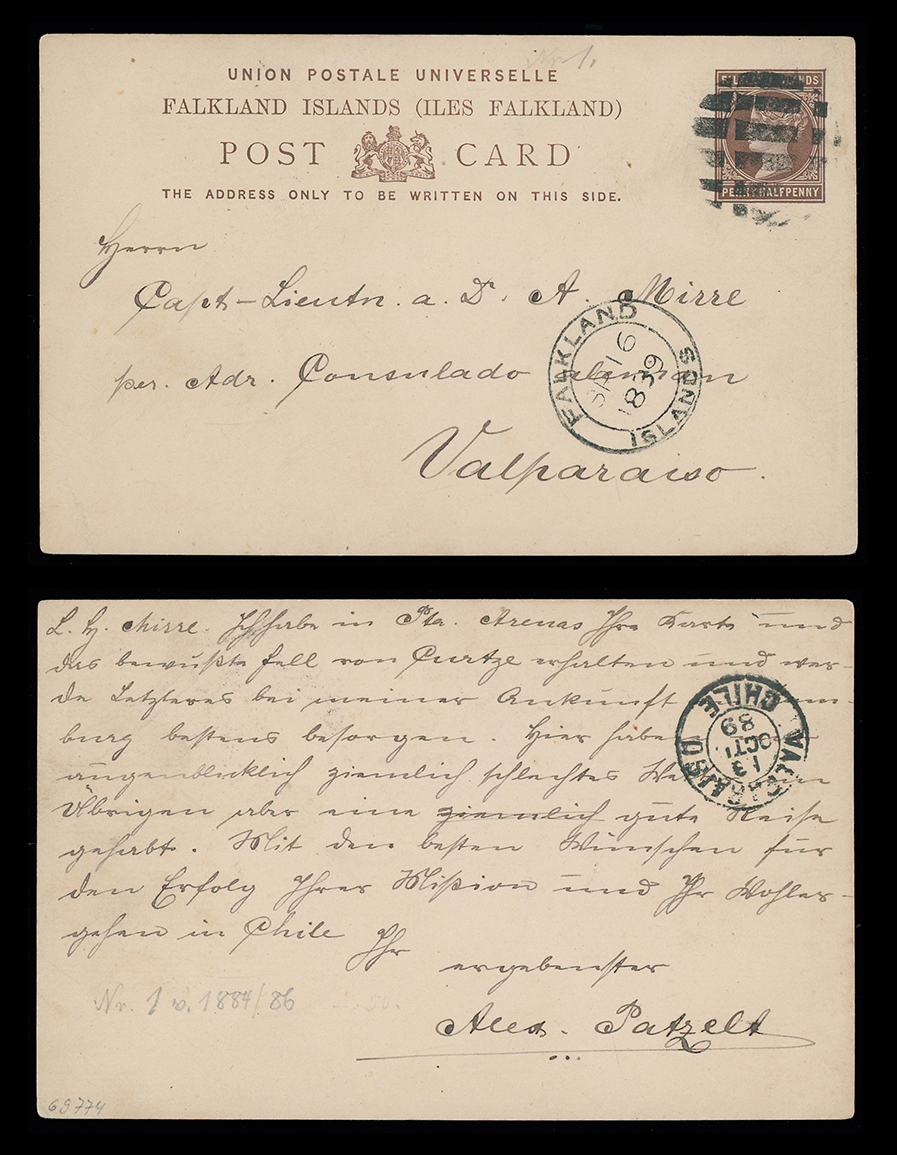 Nr. 1.
UNION POSTALE UNIVERSELLE
FALKLAND ISLANDS (ILES FALKLAND)
POST CARD
THE ADDRESS ONLY TO BE WRITTEN ON THIS SIDE.
PENNY HALFPENNY
Herrn
Capt-Lieutn. a. D. A. Mirre
per. Adr. Consulado aleman
Valparaiso.
FALKLAND ISLANDS
16
L. H. Mirre. Ich habe in Pta. Arenas Ihre Karte und
das bewußte Fell von Curtze erhalten und wer-
de Letzteres bei meiner Ankunft
burg bestens besorgen. Hier habe
augenblicklich ziemlich schlechtes
Übrigen aber eine ziemlich gute Reise
gehabt. Mit den besten Wünschen für
den Erfolg Ihrer Mißion und Ihr Wohler-
gehen in Chile
Ihr
ergebenster
Alex. Patzelt
VALPARAISO CHILE
13
OCT.
89
Nr. 1 v. 1884/86
69774